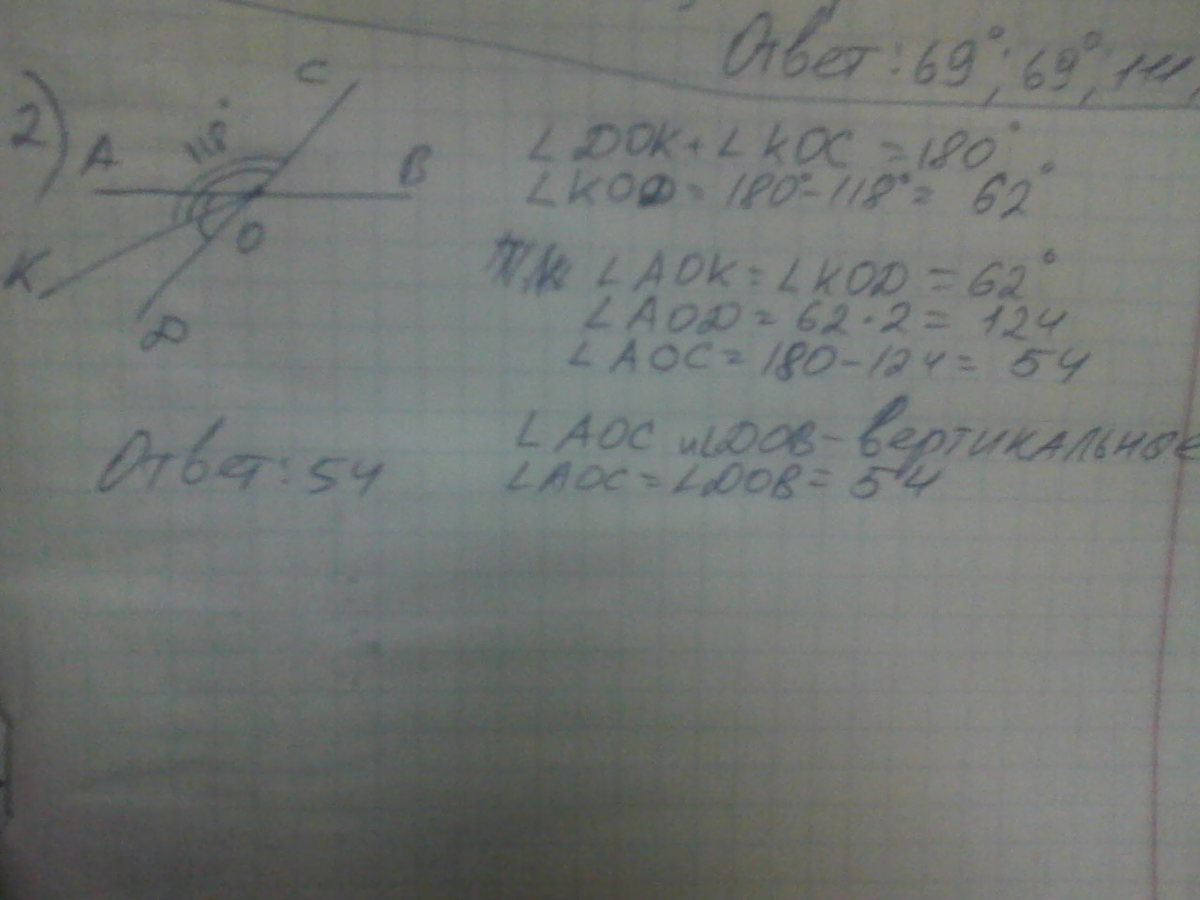 Ответ: 69°; 69°; 111,
2)
C
118°
A
B
O
K
D
∠DOK + ∠KOC = 180°
∠KOD = 180° - 118° = 62°
т.к. ∠AOK = ∠KOD = 62°
∠AOD = 62 · 2 = 124
∠AOC = 180 - 124 = 54
∠AOC и ∠DOB - вертикальные
∠AOC = ∠DOB = 54
Ответ: 54